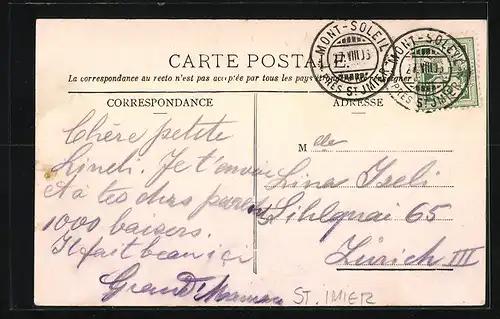 MONT-SOLEIL
27.VIII.03
(PRÈS ST. IMIER)
MONT-SOLEIL
27.VIII.03
(PRÈS ST. IMIER)
CARTE POSTALE
La correspondance au recto n'est pas acceptée par tous les pays
CORRESPONDANCE
ADRESSE
Chère petite
Lineli. Je t'envoie
et à tes chers parents
1000 baisers.
Il fait beau ici
Grand'Maman
Mdlle
Lina Iseli
Sihlquai 65
Zürich III
ST. IMIER